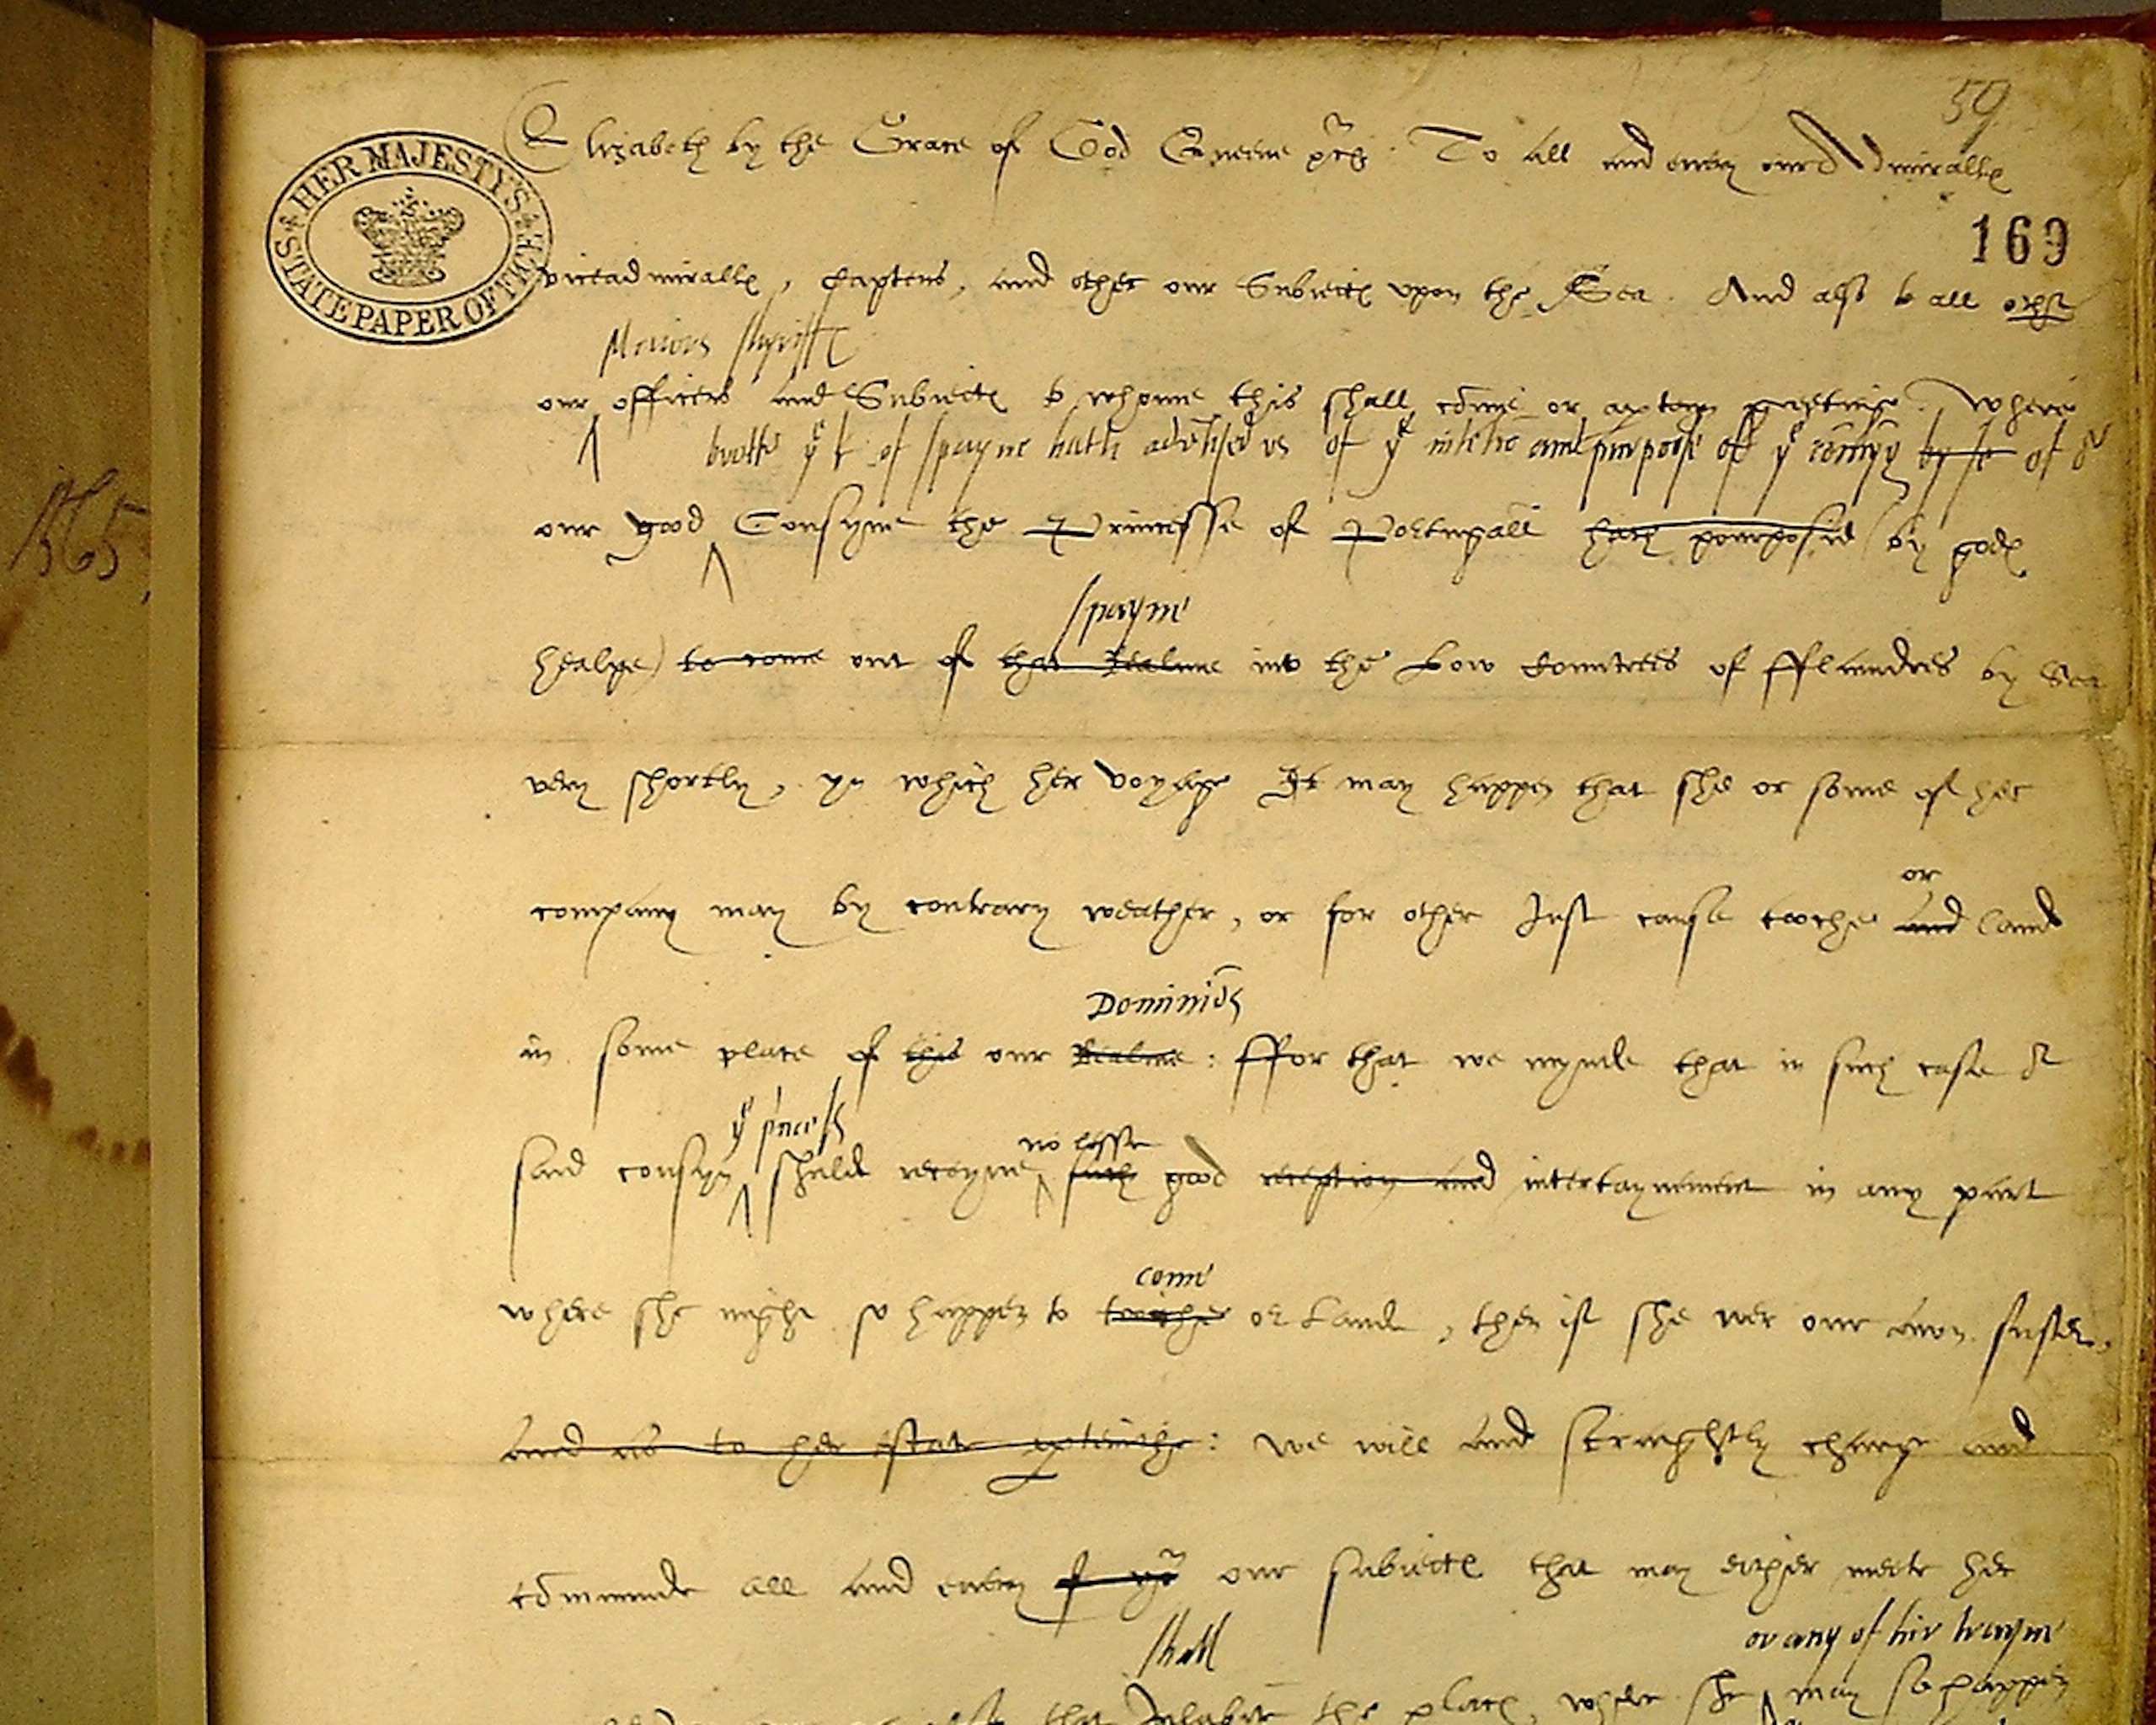 59
HER MAJESTY'S
STATE PAPER OFFICE
Elizabeth by the Grace of God Queene &c. To all and every our Admiralls
169
viceadmiralls, Captens, and other our Subiects upon the Sea. And also to all other
Maiors shyriffs
our officers and Subiects to whome this shall come or apteyn greeting. Where
brother ye k of spayne hath advertised us of ye intētiō and purpose off ye comyng by se of ye
our good Cousyne the Princesse of Portugall hath pourposed (by gods
1565
spayne
healpe) to come out of that Realme into the Low Countrees of fflaundres by Sea
very shortly, yn which her voyage It may happen that she or some of her
or
company may by contrary weather, or for other Just cause towche and land
Dominiōs
in some place of this our Realme: ffor that we mynde that in such case
ye princess
no lesse
said cousyn shuld receyve such good reception and intertaynement in any part
come
where she might so happen to towche or Lande, then if she wer our awn suster,
and as to her estate apteineth: we will and straightly charge and
cōmmunde all and every of yow our subiects that may either meete her
shall
or any of hir trayne
that Inhabite the places, where she may so happen